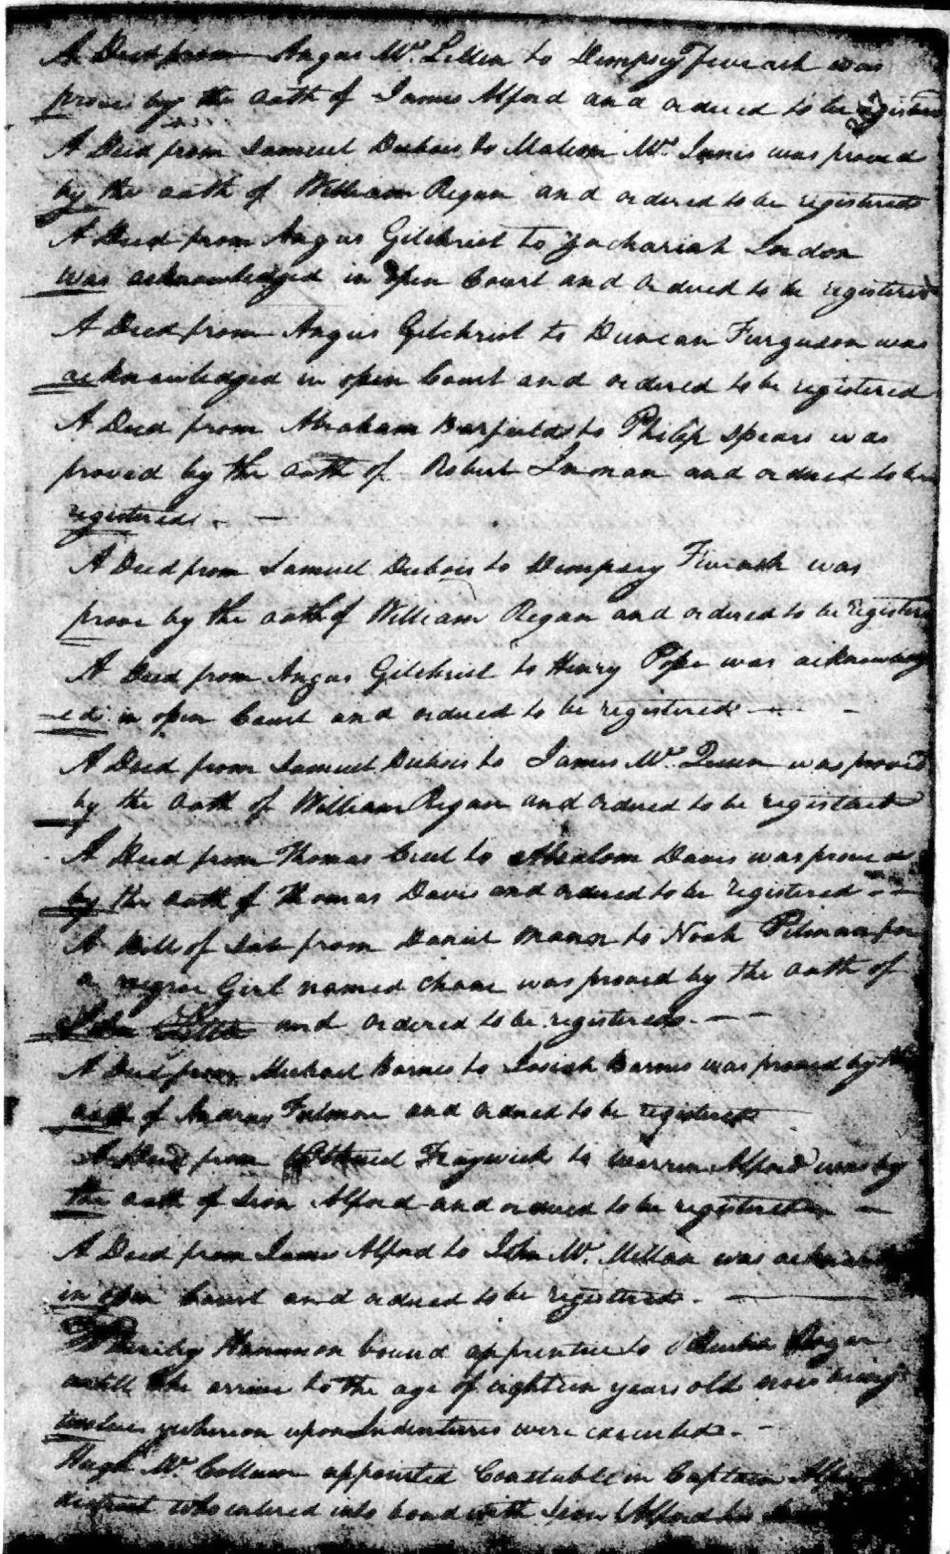 A Deed from Angus Mc. Lellan to Dempsy Fiveash was
prove by the oath of James Alford and ordered to be registered
A Deed from Samuel Dubois to Malcom Mc. Innis was proved
by the oath of William Regan and ordered to be registered
A Deed from Angus Gilchrist to Zachariah Lndon
was acknowledged in open Court and ordered to be registered
A Deed from Angus Gilchrist to Duncan Furguson was
acknowledged in open Court and ordered to be registered
A Deed from Abraham Barfield to Philip Spears was
proved by the oath of Robert Inman and ordered to be
registered. –
A Deed from Samuel Dubois to Dempsey Fiveash was
prove by the oath of William Regan and ordered to be registere
A Deed from Angus Gilchrist to Henry Pope was acknowledg
–ed in open Court and ordered to be registered –
A Deed from Samuel Dubois to James Mc. Queen was proved
by the oath of William Regan and ordered to be registered
A Deed from Thomas Creel to Absalom Davis was proved
by the oath of Thomas Davis and ordered to be registered – –
A Bill of Sale from Daniel Manor to Noah Pitman for
a negroe Girl named Chane was proved by the oath of
and ordered to be registered. – –
A Deed from Michael Barnes to Josiah Barnes was proved by the
oath of Andrew Fulmore and ordered to be registered
A Deed from Traywick to Warren Alford was by
the oath of Sion Alford and ordered to be registered –
A Deed from James Alford to John Mc. Millan was
in open Court and ordered to be registered. –
Hammon bound apprentice to
untill she arrive to the age of eighteen years old now being
twelve whereon upon Indentures were executed. –
Hugh Mc. Collum appointed Constable in Captain
district who entered into bond with Sion Alford his